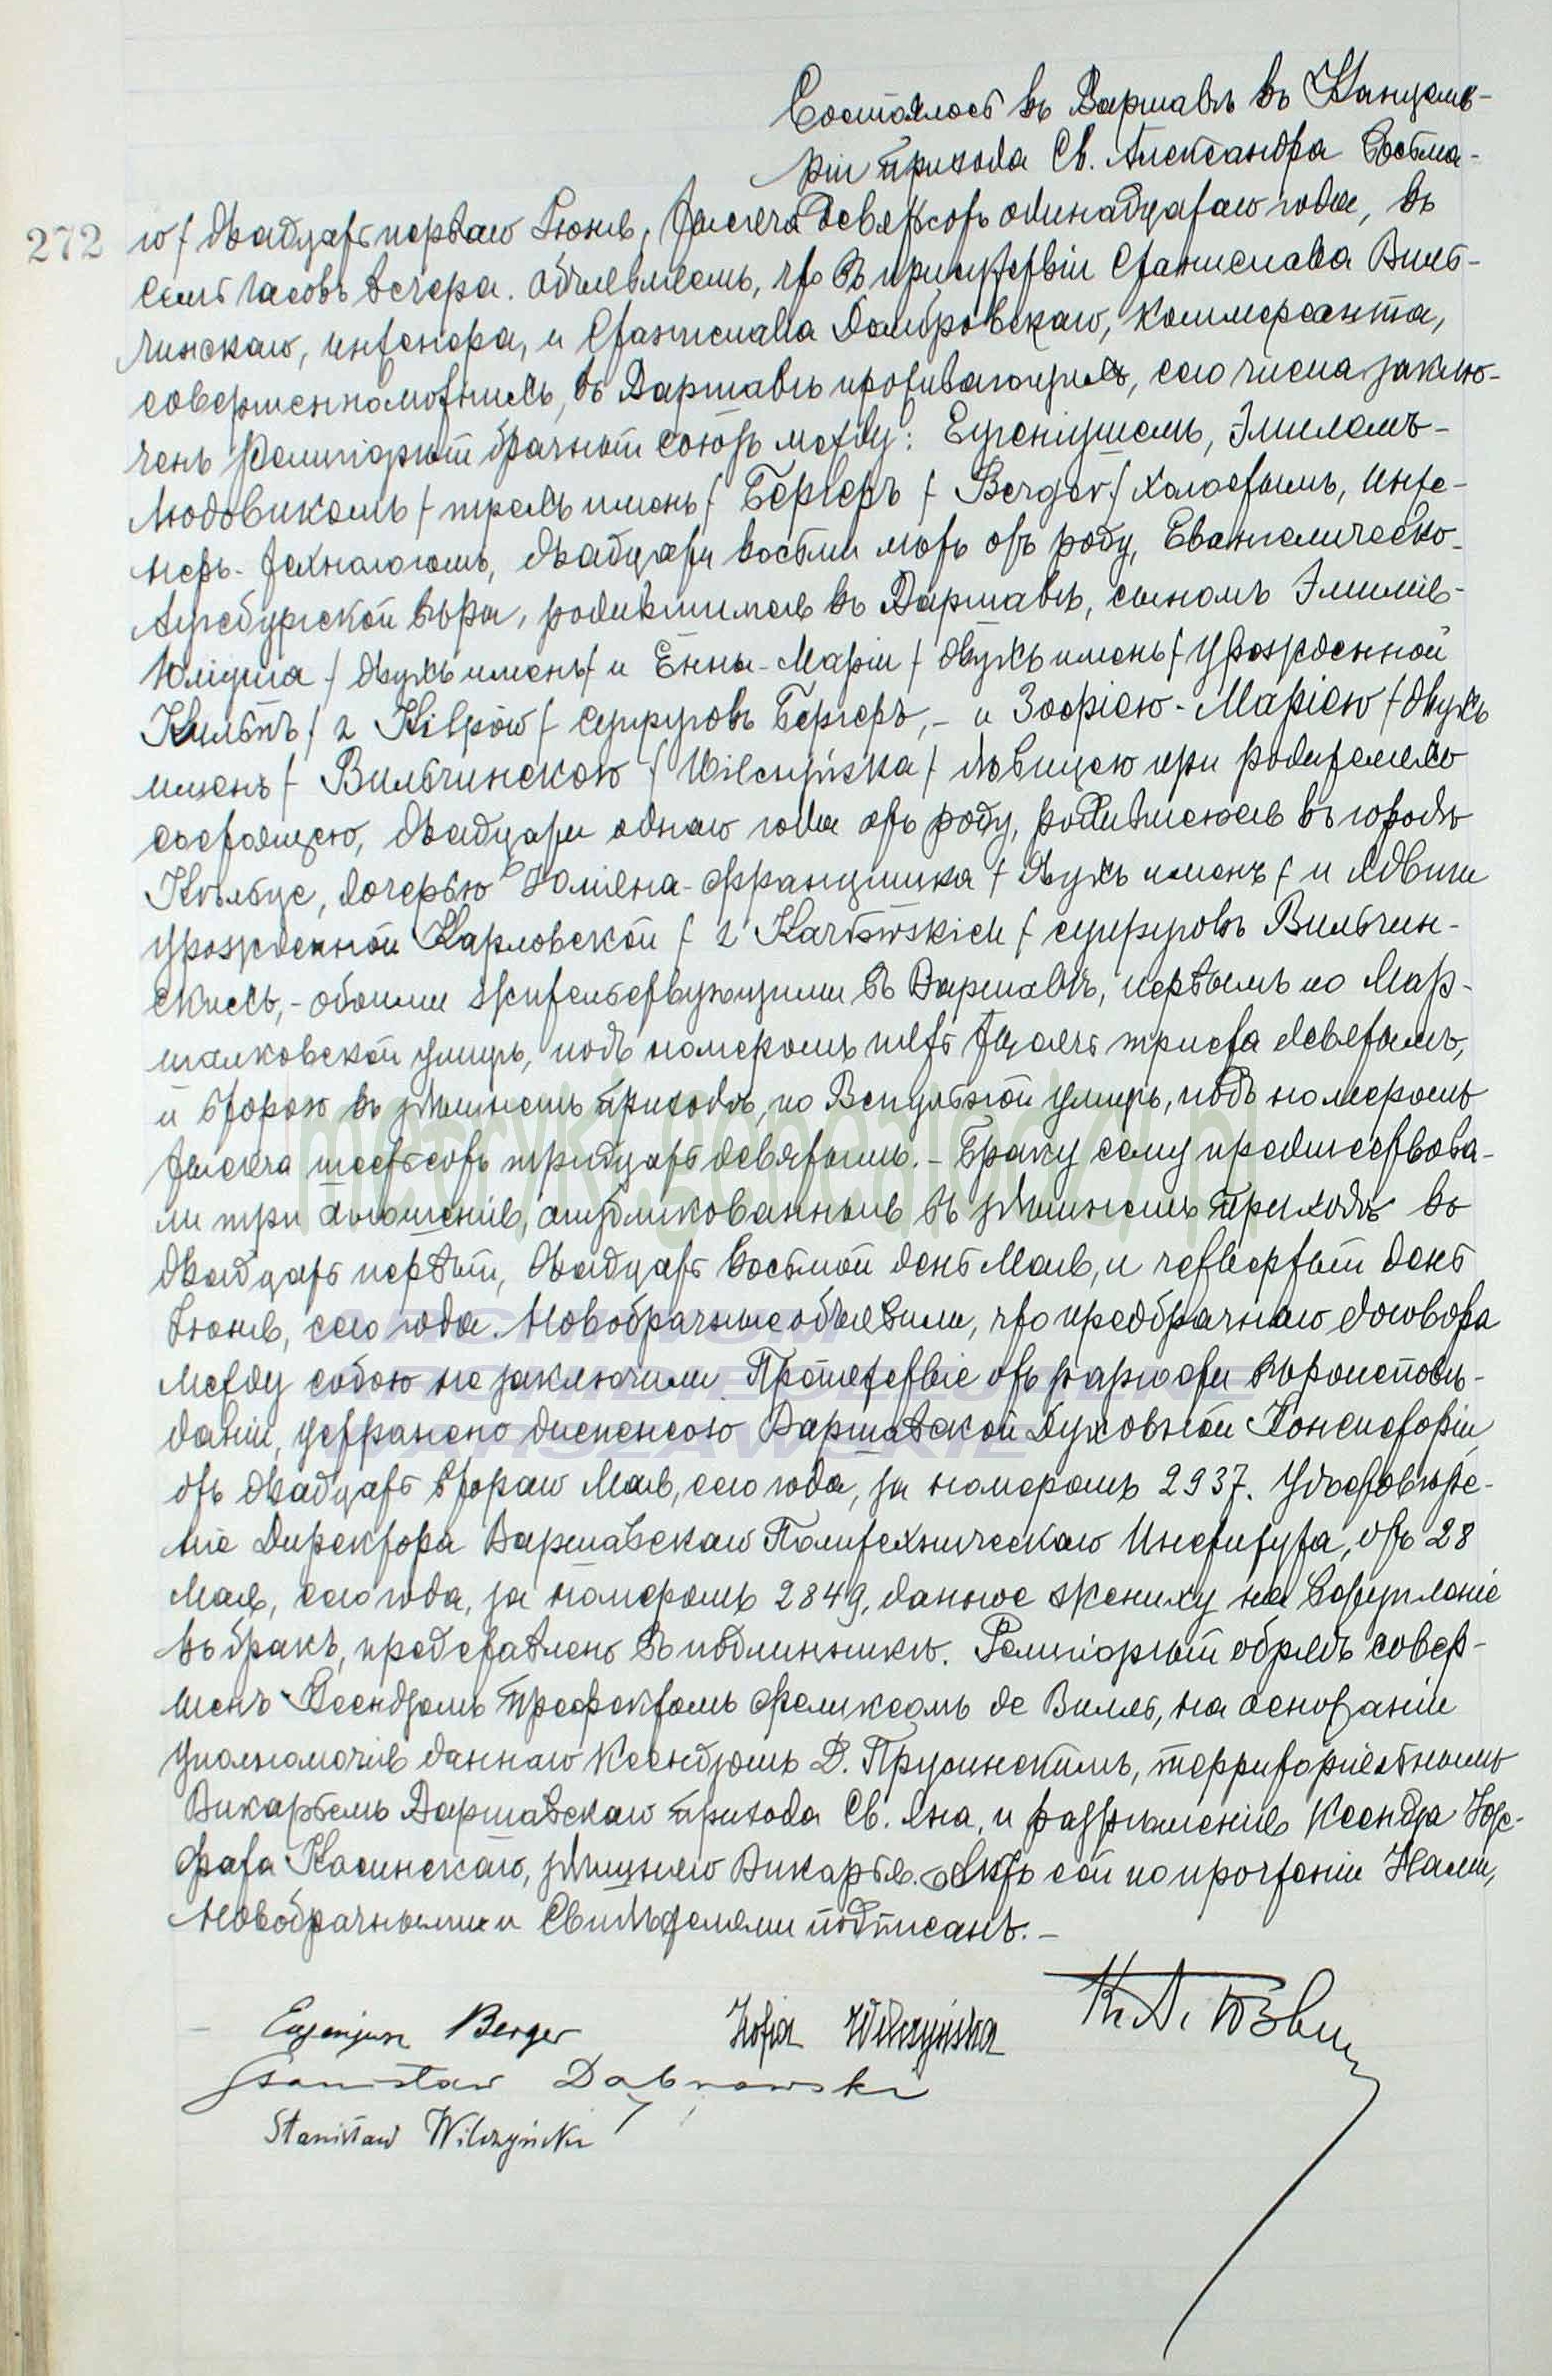 Состоялось въ Варшавѣ въ Канцеля-
ріи прихода Св. Александра восьма-
272
го / двадцать перваго Іюня, тысяча девятьсотъ одинадцатаго года, въ
семь часовъ вечера. Объявляемъ, что въ присутствіи Станислава Виль-
чинскаго, инженера, и Станислава Домбровскаго, коммерсанта,
совершеннолѣтнихъ, въ Варшавѣ проживающихъ, сего числа заклю-
ченъ религіозный брачный союзъ между: Еугеніушемъ, Эмилемъ-
Людовикомъ / трехъ именъ / Бергеръ / Berger / холостымъ, инже-
неръ-технологомъ, двадцати восьми лѣтъ отъ роду, Евангелическо-
Аугсбургской вѣры, родившимся въ Варшавѣ, сыномъ Эмилія-
Юліуша / двухъ именъ / и Енны-Маріи / двухъ именъ / урожденной
Кильпъ / z Kilpów / супруговъ Бергеръ, - и Зофіею-Маріею / двухъ
именъ / Вильчинскою / Wilczyńska / дѣвицею при родителяхъ
состоящею, двадцати однаго года отъ роду, родившеюся въ городѣ
Кѣльце, дочерью Юліяна-Францишка / двухъ именъ / и Ядвиги
урожденной Карловской / z Karłowskich / супруговъ Вильчин-
скихъ, - обоими жительствующими въ Варшавѣ, первымъ по Мар-
шалковской улицѣ, подъ номеромъ шесть тысячъ триста девятымъ,
и второю въ здѣшнемъ приходѣ, по Вспульной улицѣ, подъ номеромъ
тысяча шестьсотъ тридцать девятымъ. - Браку сему предшествова-
ли три оглашенія, опубликованныя въ здѣшнемъ приходѣ въ
двадцать первый, двадцать восьмой день Мая, и четвертый день
Іюня, сего года. Новобрачные объявили, что предбрачнаго договора
между собою не заключили. Препятствіе отъ разности вѣроисповѣ-
даній, устранено диспенсою Варшавской Духовной Консисторіи,
отъ двадцать втораго Мая, сего года, за номеромъ 2937. Удостовѣре-
ніе Директора Варшавскаго Политехническаго Института, отъ 28
Мая, сего года, за номеромъ 2849, данное жениху на вступленіе
въ бракъ, представлено въ подлинникѣ. Религіозный обрядъ совер-
шенъ Ксендзомъ Префектомъ Феликсомъ де Вилль, на основаніи
уполномочія даннаго Ксендзомъ В. Прусинскимъ, территоріяльнымъ
Викаріемъ Варшавскаго прихода Св. Яна, и разрѣшенія Ксендза Юзе-
фата Касинскаго, здѣшняго Викарія. Актъ сей по прочтеніи Нами,
Новобрачными и Свидѣтелями подписанъ. -
Eugenjusz Berger Zofia Wilczyńska
Stanisław Dąbrowski
Stanisław Wilczyński
metryki.genealodzy.pl